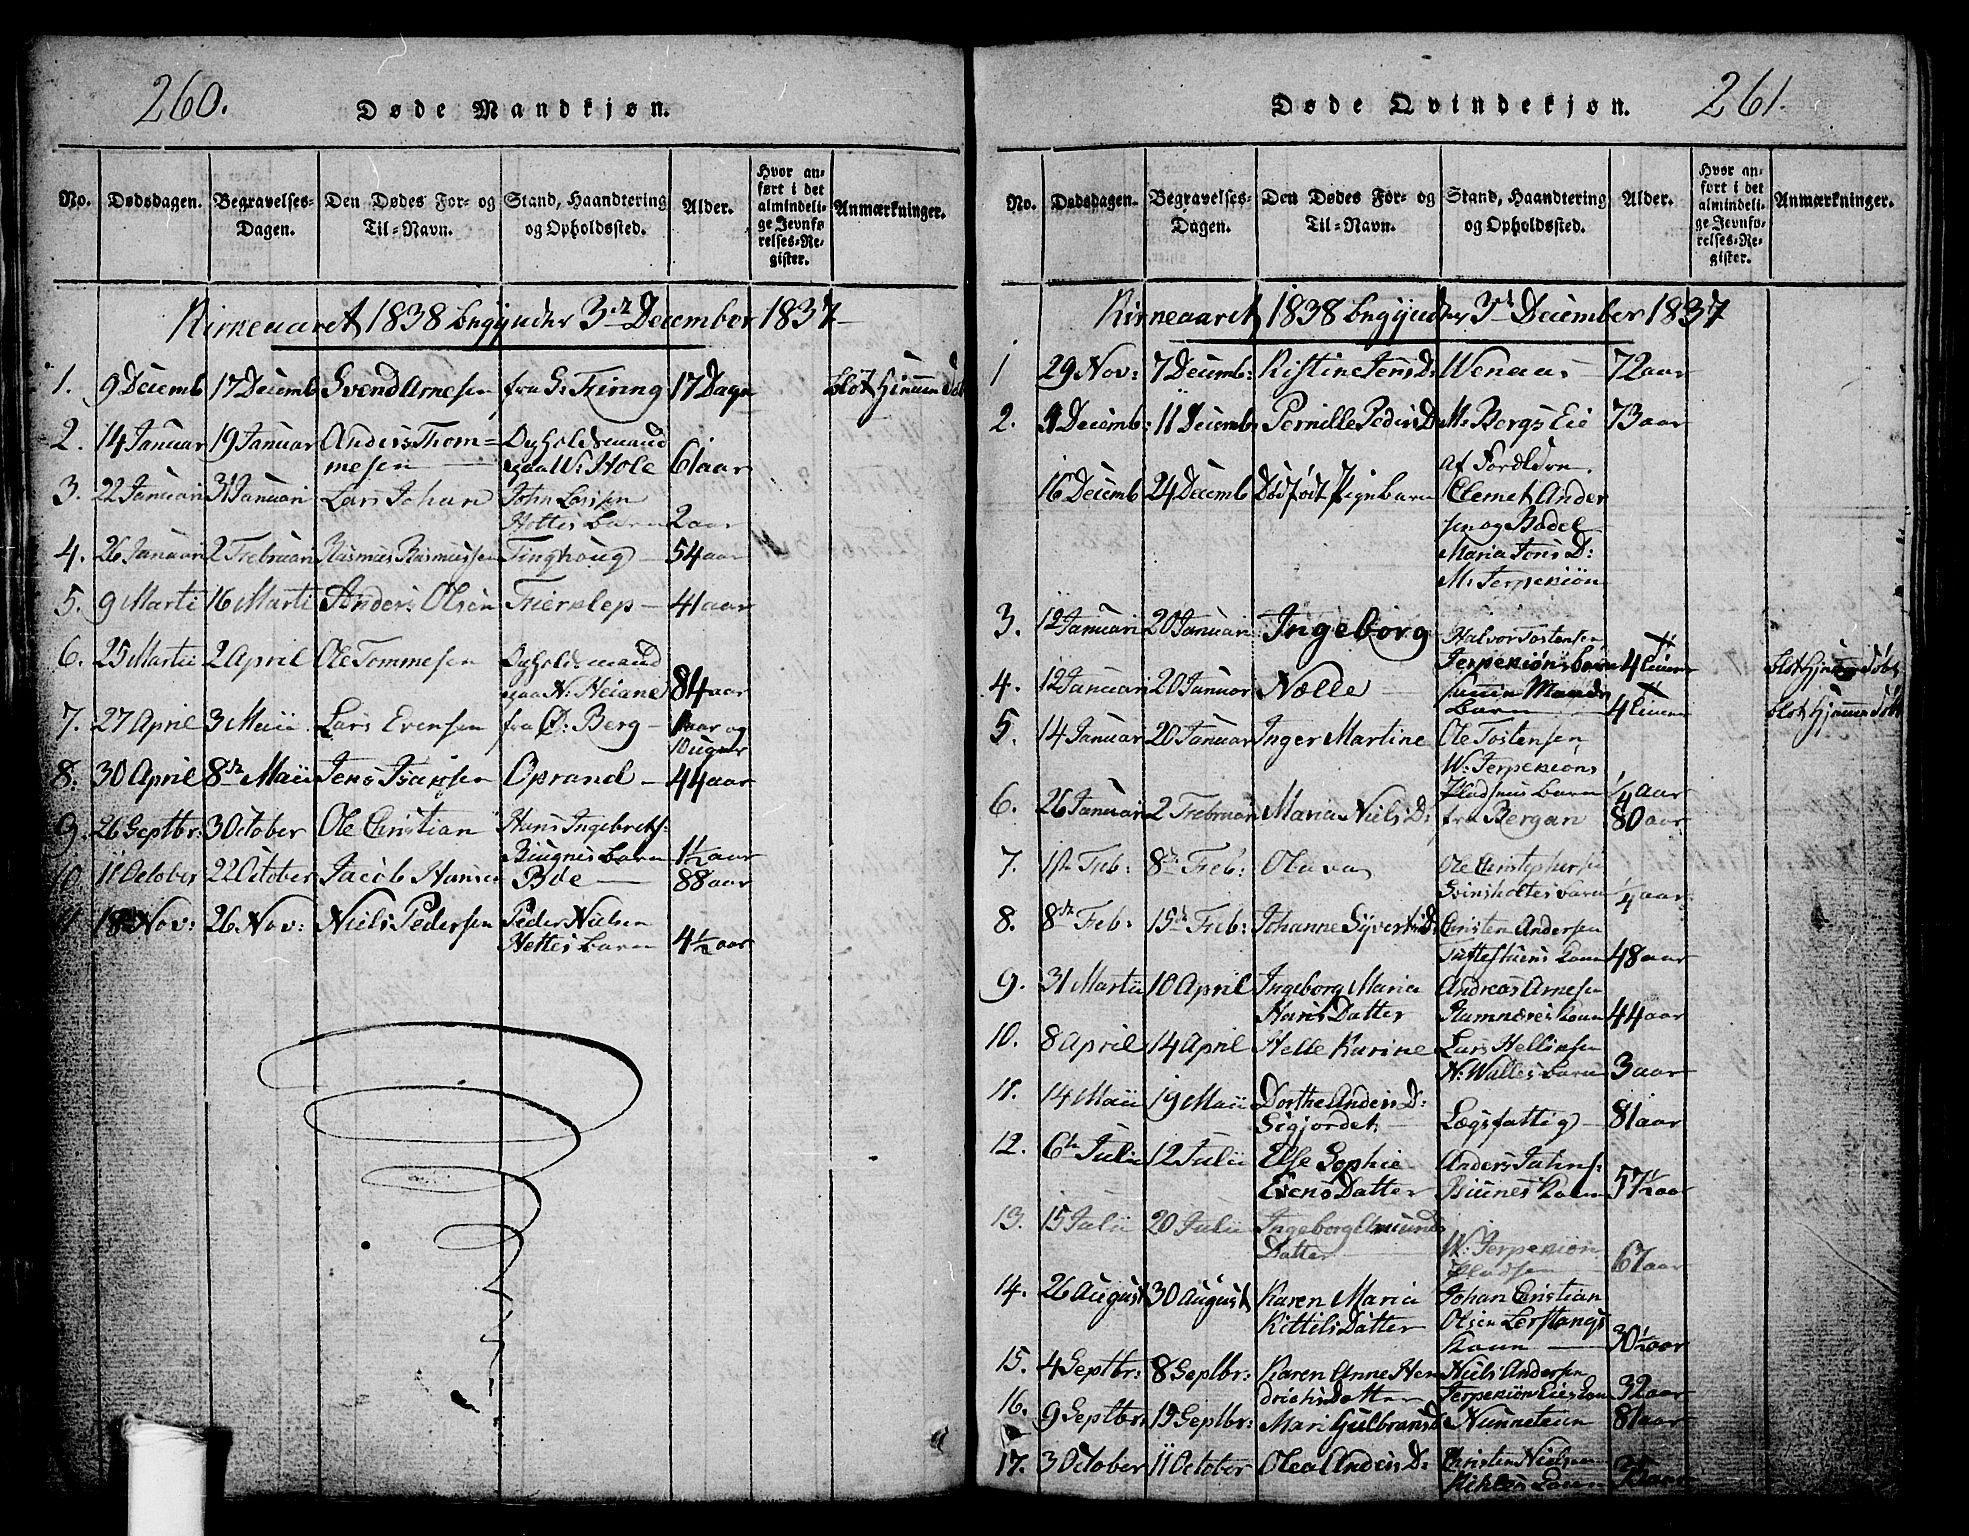 260.
Døde Mandkjøn.
No. Dødsdagen. Begravelses-Dagen. Den Dødes For- og Til-Navn. Stand, Haandtering og Opholdssted. Alder. Hvor anført i det almindelige Jevnførelses-Register. Anmærkninger.
Kirkeaaret 1838 begynder 3de December 1837
1. 9 Decemb 17 Decemb Svend Arnesen fra S: Firing 17 Dage blot hjemme Døbt
2. 14 Januar 19 Januar Anders Thom=
mesen
paa W: Hole 61 aar
3. 22 Januari 31 Januari Lars Johan John Larssen
Hottes barn 2 aar
4. 26 Januari 2 Februari Rasmus Rasmussen Tinghoug 54 aar
5. 9 Marti 16 Marti Anders Olsen 41 aar
6. 25 Martii 2 April Ole Tommesen
paa N: Heiane 84 aar
7. 27 April 3 Maii Lars Evensen fra Ø: Berg 1 aar og
10 uger
8. 30 April 8de Maii Jens Isaksen Oprand 44 aar
9. 26 Septbr: 3 October Ole Christian Hans Ingebrets:
barn 1½ aar
10 11 October 22 October Jacob Hansen Bøe 88 aar
11 18 Nov: 26 Nov: Niels Pedersen Peder Nielsen
Hottes barn 4½ aar
261.
Døde Qvindekjøn.
No. Dødsdagen. Begravelses-Dagen. Den Dødes For- og Til-Navn. Stand, Haandtering og Opholdssted. Alder. Hvor anført i det almindelige Jevnførelses-Register. Anmærkninger.
Kirkeaaret 1838 begynder 3de December 1837
1 29 Nov: 7 Decemb: Kistine Jens D: Wenaas 72 aar
2. Decemb: 11 Decemb: Pernille Peders D: M: Bergs Eie 73 aar
16 Decemb 24 Decemb Dødfødt Pigebarn
Clemet Ander
sen og Bodel
Maria Jens D:
M: Jerpekiøn
3. 12 Januari 20 Januari Ingeborg Halvor Tostensen
Jerpekiøns barn 4 timer blot hjemme Døbt
4. 12 Januari 20 Januar Nælle samme Mands
barn 4 timer blot hjemme Døbt
5. 14 Januar 20 Januar Inger Martine Ole Tostensen
W: Jerpekiøns
Pladsens barn ¼ aar
6. 26 Januari 2 Februar Maria Niels D: fra Bergan 80 aar
7. 1ste Feb: 8de Feb: Olava Ole Christophersen
barn ¼ aar
8. 8de Feb: 15de Feb: Johanne Syverts D: Christen Andersen
kone 48 aar
9. 31 Martii 10 April Ingeborg Maria Andreas Arnesen
Hans Datter kone 44 aar
10. 8 April 14 April Helle Karine Lars Helliksen
N: Walles barn 3 aar
11. 14 Maii 19 Maii Dorthe Anders D:
Sigjordet: Lægsfattig 81 aar
12. 6te Julii 12 Julii Else Sophie Anders Jahns:
Evens Datter kone 57½ aar
13. 15 Julii 20 Julii Ingeborg Amunds
Datter W: Jerpekiøn
Pladsen 67 aar
14. 26 August 30 August Karen Maria Johan Christian
Kittels Datter Olsen Lerstangs
kone 30½ aar
15. 4 Septbr: 8 Septbr: Karen Anne Hen Niels Andersen
driks Datter Jerpekiøn Eies kone 32 aar
16. 9 Septbr: 15 Septbr: Mari Gulbrans D Nunneteien 81 aar
17. 3 October 11 October Olea Anders D: Christen Nielsen